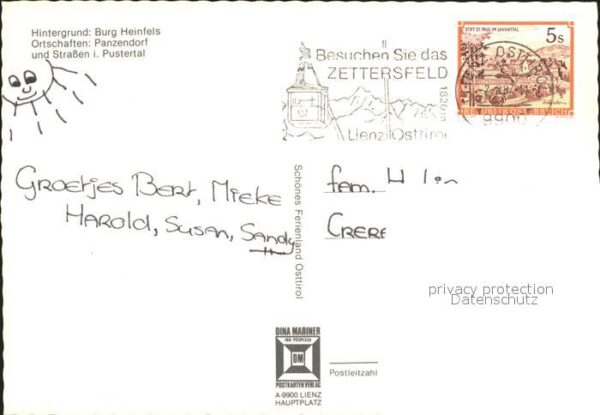 Hintergrund: Burg Heinfels
Ortschaften: Panzendorf
und Straßen i. Pustertal
Besuchen Sie das
ZETTERSFELD
1820m
Lienz Osttirol
STIFT ST. PAUL IM LAVANTTAL
5s
REPUBLIK ÖSTERREICH
9900
Groetjes Bert, Mieke
Harold, Susan, Sandy
fam. H
Schönes Ferienland Osttirol
privacy protection
Datenschutz
DINA MARINER
DM
POSTKARTENVERLAG
A-9900 LIENZ
HAUPTPLATZ
Postleitzahl